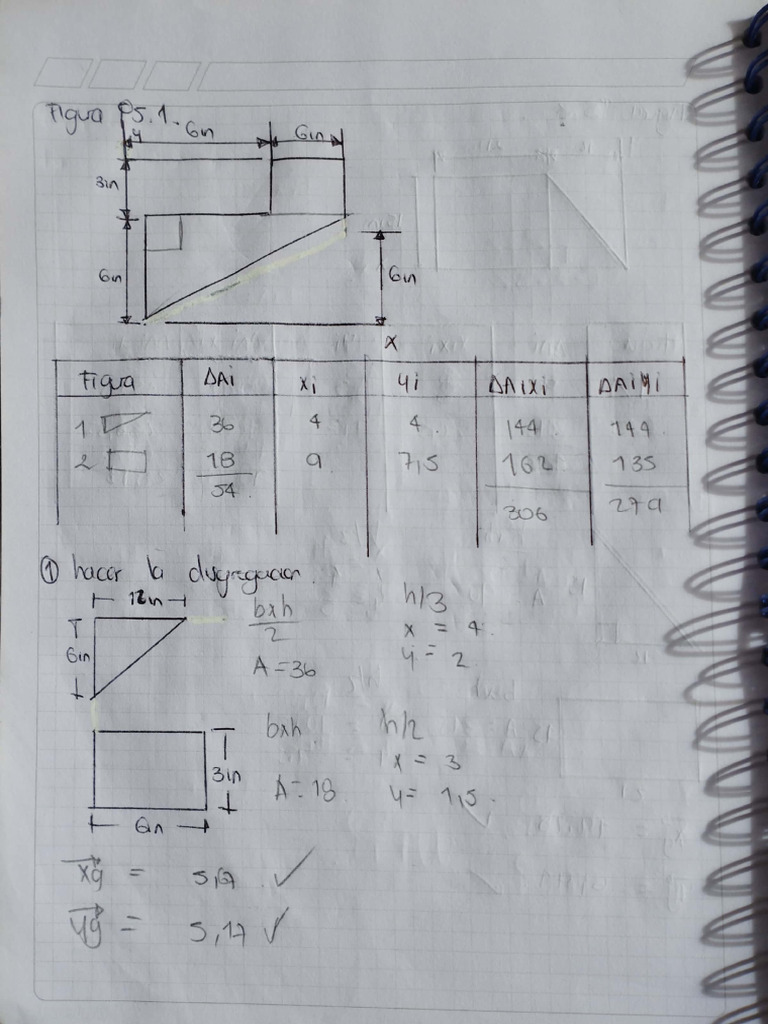 Figura P5.1.
y 6in 6in
3in
6in 6in
x
Figura ΔAi xi yi ΔAixi ΔAiyi
1 36 4 4 144 144
2 18 9 7,5 162 135
54 306 279
① hacer la disgregacion.
12in
bxh/2 h/3
6in x = 4
A = 36 y = 2
bxh h/2
3in x = 3
A = 18 y = 1,5
6in
xg = 5,67 ✓
yg = 5,17 ✓